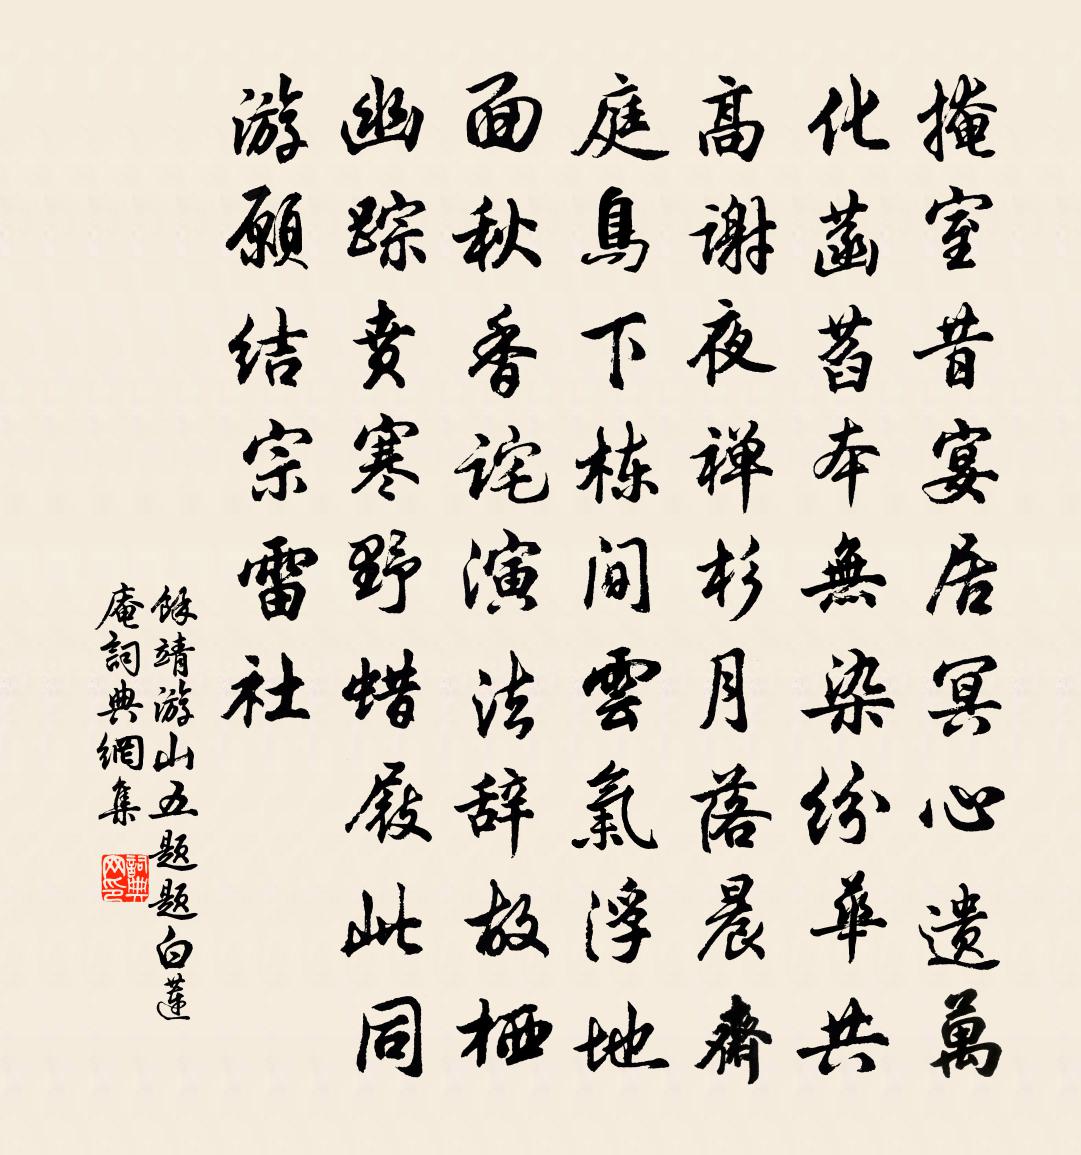 掩室昔宴居冥心遗萬
化菡萏本無染纷華共
高谢夜禅杉月落晨齋
庭鳥下栋间雲氣浮地
面秋香诧演法辞故栖
幽踪賁寒野蜡屐此同
游願结宗雷社
餘靖游山五题题白蓮
庵詞典網集
詞典网印